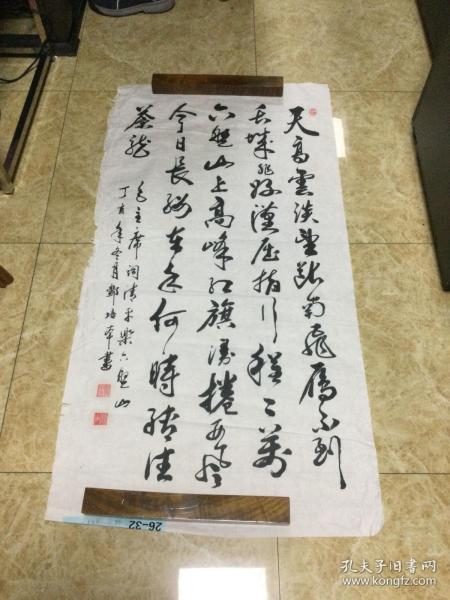 天高雲淡望断南飛雁不到
長城非好漢屈指行程二萬
六盤山上高峰红旗漫捲西风
今日長纓在手何時縛住
蒼龍
毛主席词清平樂六盤山
丁亥年冬月鄭培書
26-32
孔夫子旧书网
www.kongfz.com